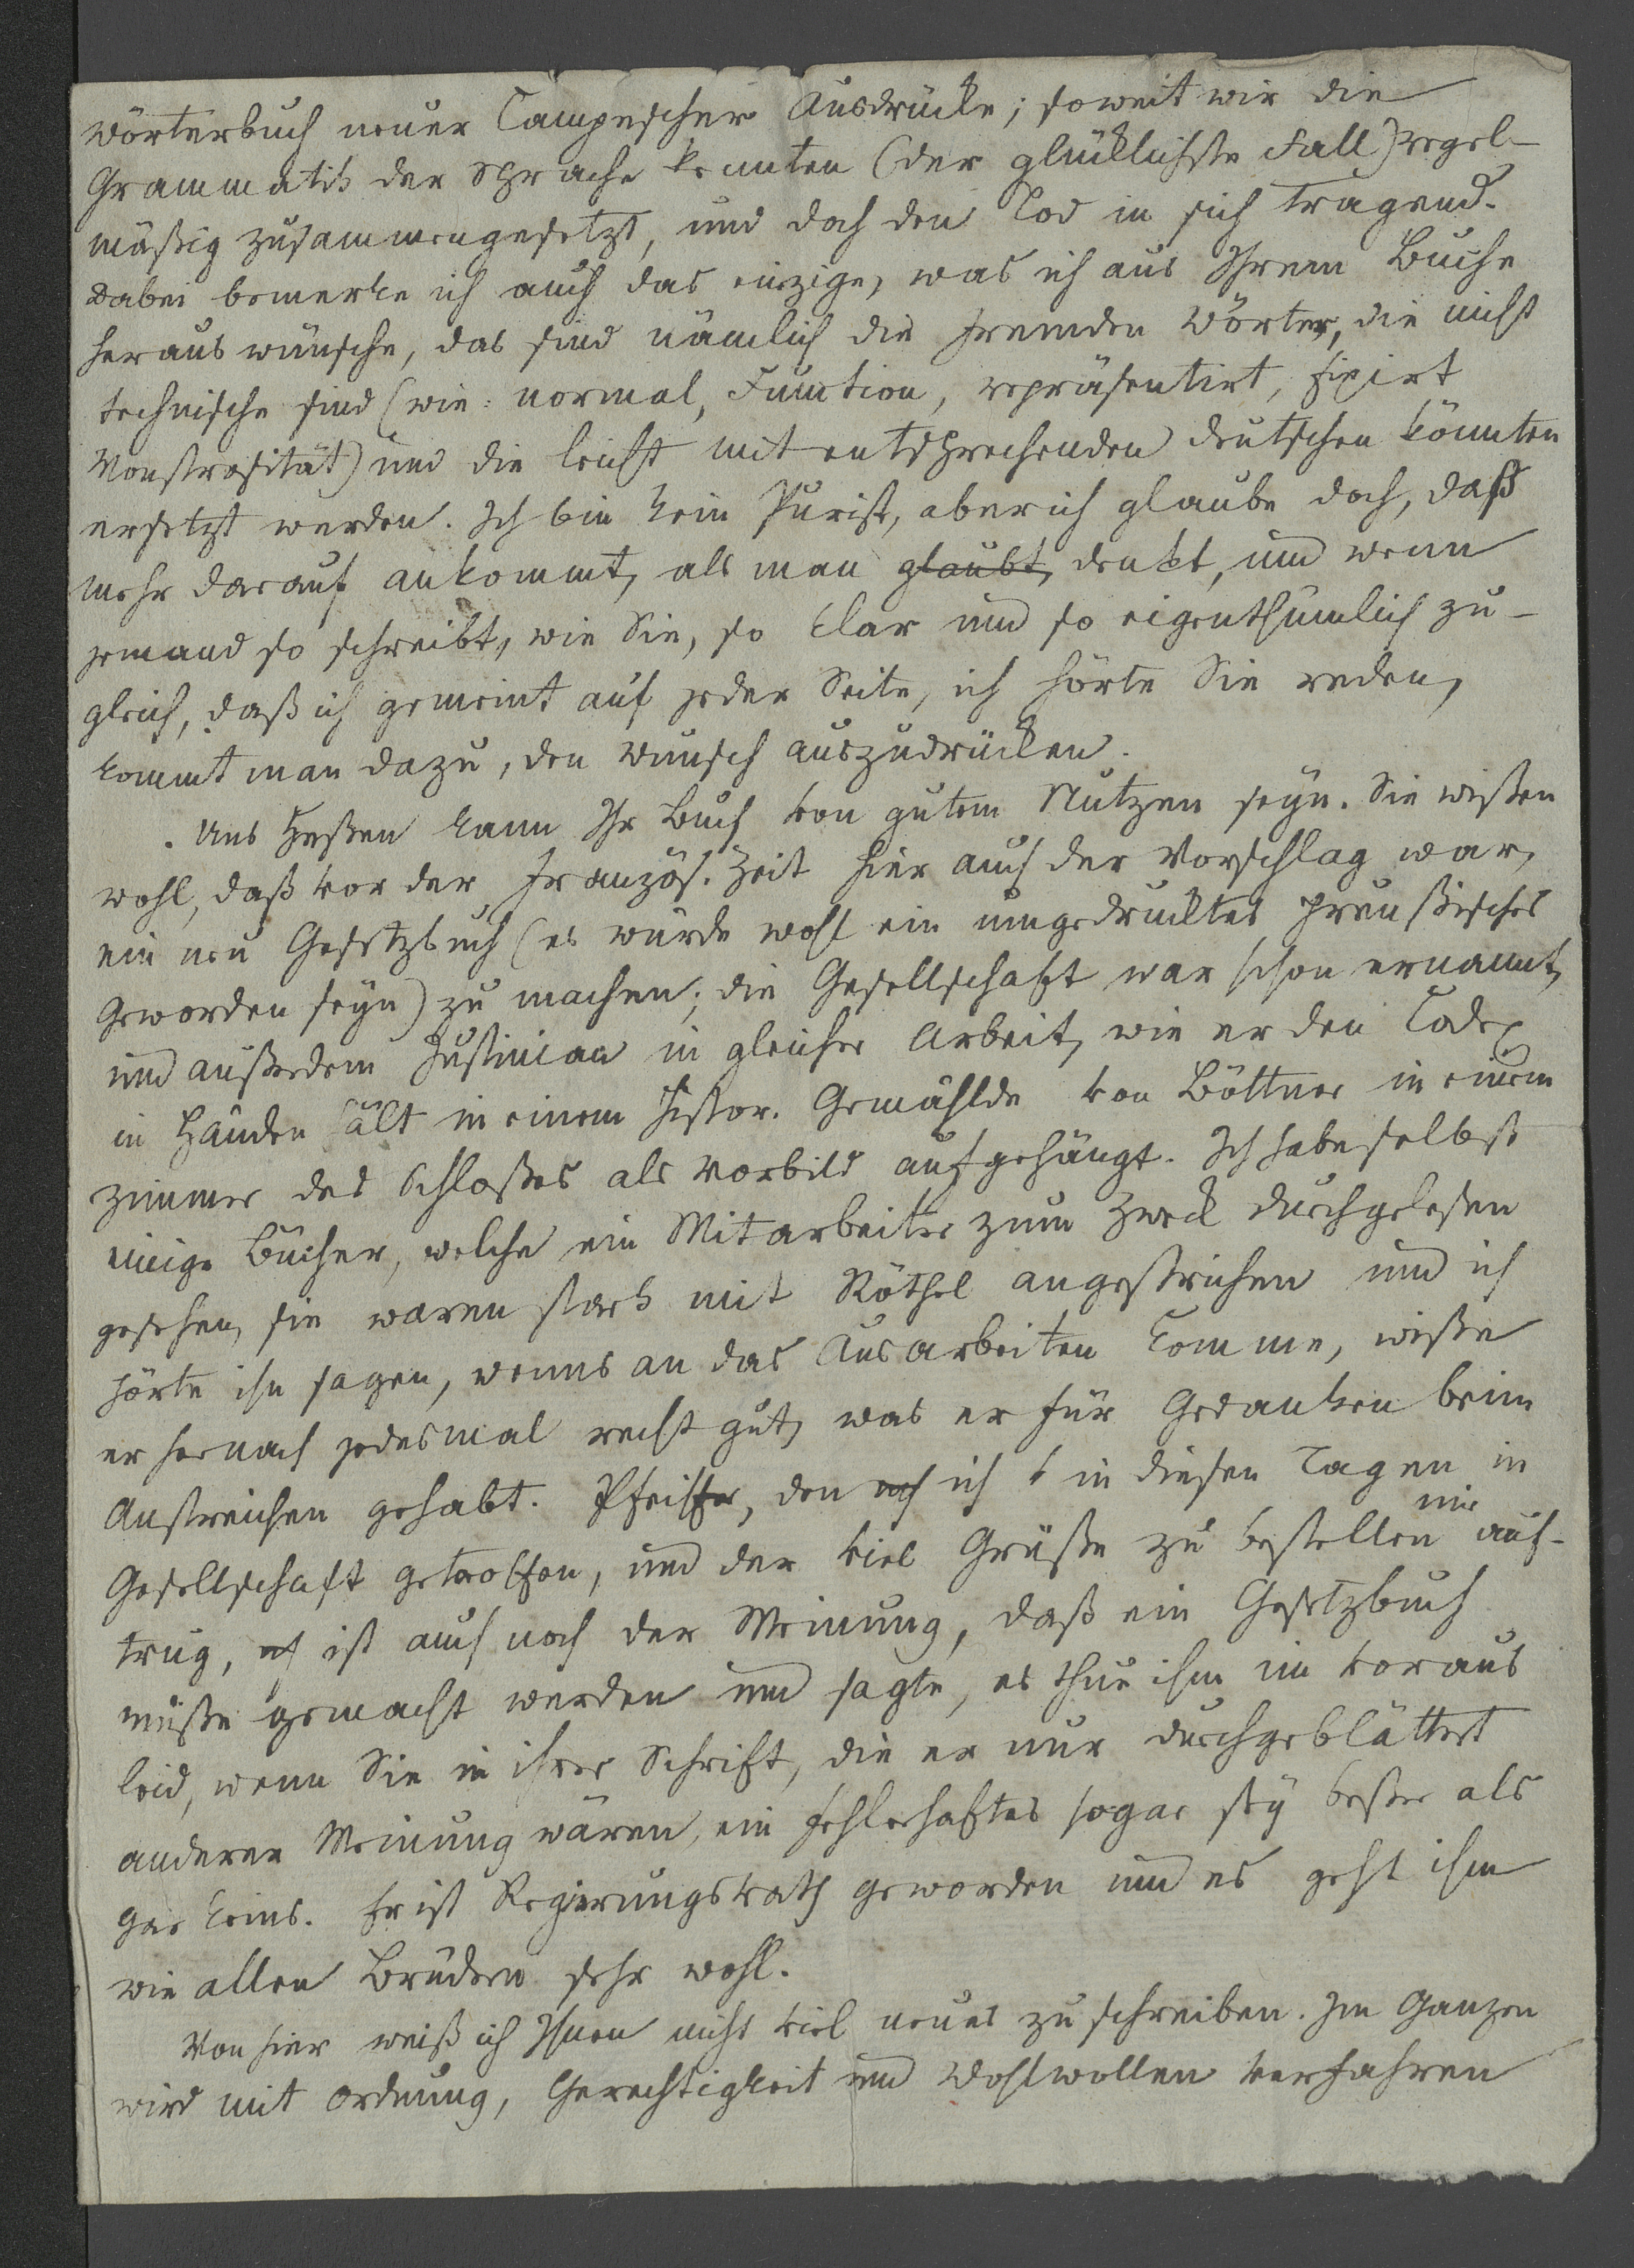 Wörterbuch neuer Campescher Ausdrücke; soweit wir die
Grammatik der Sprache kennten (der glücklichste Fall) regel-
mäßig zusammengesetzt, und doch den Tod in sich tragend.
Dabei bemerke ich auch das einzige, was ich aus Ihrem Buche
heraus wünsche, das sind nämlich die fremden Wörter, die nicht
technische sind (wie: normal, Function, repräsentirt, fixirt
Monstrosität) und die leicht mit entsprechenden deutschen könnten
ersetzt werden. Ich bin kein Purist, aber ich glaube doch, daß
mehr darauf ankommt, als man glaubt, denkt, und wenn
jemand so schreibt, wie Sie, so klar und so eigenthümlich zu-
gleich, daß ich gemeint auf jeder Seite, ich hörte Sie reden,
kommt man dazu, den Wunsch auszudrücken.
Uns Heßen kann Ihr Buch von gutem Nutzen seyn. Sie wißen
wohl, daß vor der französ. Zeit hier auch der Vorschlag war,
ein neu Gesetzbuch (es würde wohl ein umgedrucktes preußisches
geworden seyn) zu machen; die Gesellschaft war schon ernannt,
und außerdem Justinian in gleicher Arbeit, wie er den Codex
in Händen hält in einem histor. Gemählde von Böttner in einem
Zimmer des Schloßes als Vorbild aufgehängt. Ich habe selbst
einige Bücher, welche ein Mitarbeiter zum Zweck durchgelesen
gesehen, sie waren stark mit Röthel angestrichen und ich
hörte ihn sagen, wenns an das Ausarbeiten komme, wiße
er hernach jedesmal recht gut, was er für Gedanken beim
Anstreichen gehabt. Pfeiffer, den ich in diesen Tagen in
Gesellschaft getroffen, und der viel Grüße zu bestellen mir auf-
trug, ist auch noch der Meinung, daß ein Gesetzbuch
müße gemacht werden und sagte, es thue ihm im voraus
leid, wenn Sie in ihrer Schrift, die er nur durchgeblättert
anderer Meinung wären, ein fehlerhaftes sogar sey beßer als
gar keins. Er ist Regierungsrath geworden und es geht ihm
wie allen Brüdern sehr wohl.
Von hier weiß ich Ihnen nicht viel neues zu schreiben. Im Ganzen
wird mit Ordnung, Gerechtigkeit und Wohlwollen verfahren